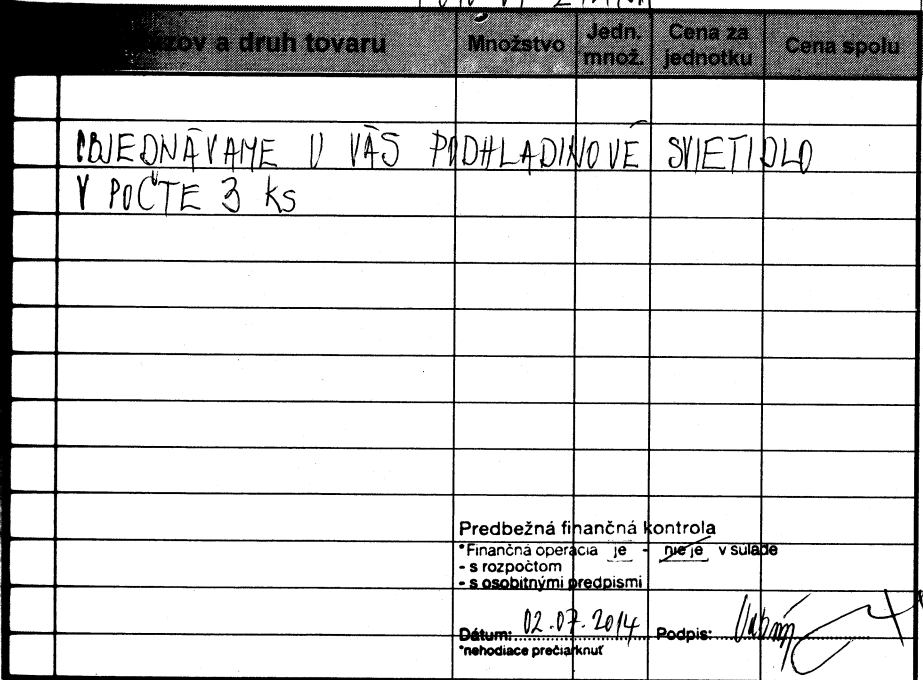 a druh tovaru Množstvo Jedn. množ. Cena za jednotku Cena spolu
OBJEDNÁVAME U VÁS PODHLADINOVÉ SVIETIDLO
V POČTE 3 ks
Predbežná finančná kontrola
*Finančná operácia je - nie je v súlade
- s rozpočtom
- s osobitnými predpismi
Dátum: 02.07.2014 Podpis:
*nehodiace prečiarknuť